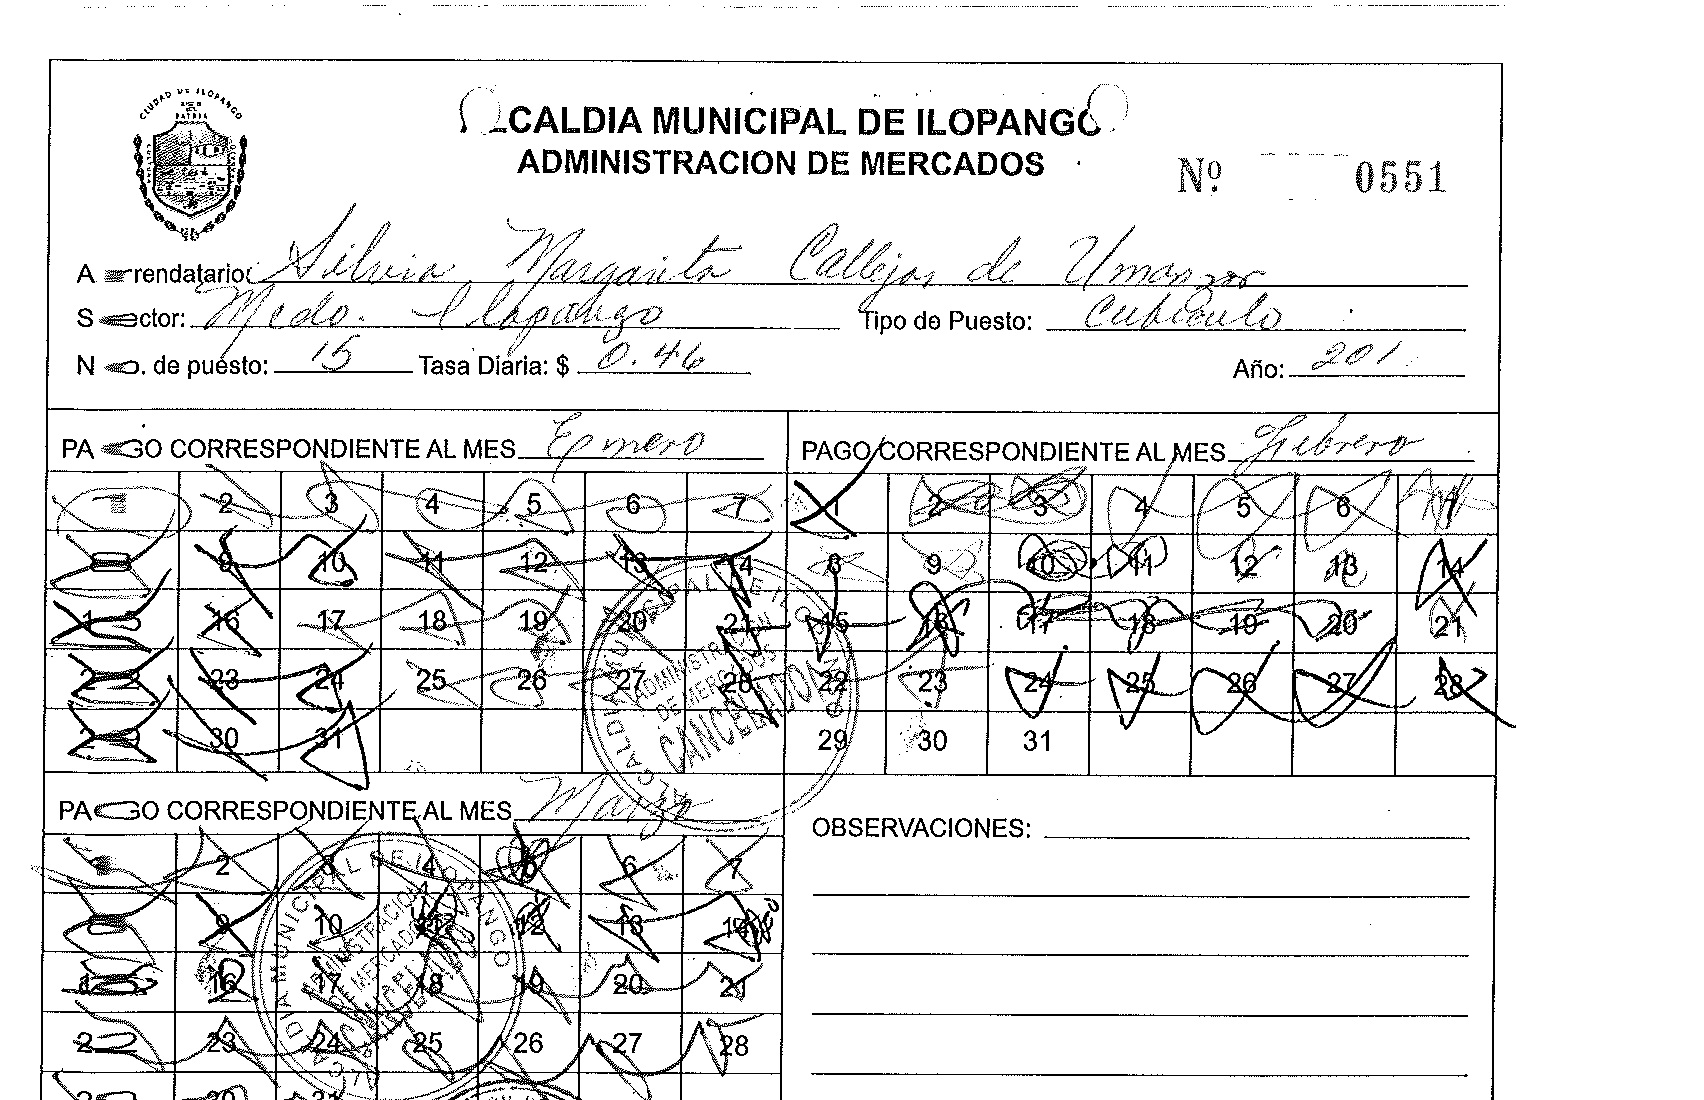 CIUDAD DE ILOPANGO
PATRIA
ALCALDIA MUNICIPAL DE ILOPANGO
ADMINISTRACION DE MERCADOS
Nº 0551
Arrendatario: Silvia Margarita Callejas de Umanzor
Sector: Mcdo. Ilopango Tipo de Puesto: Cubiculo
No. de puesto: 15 Tasa Diaria: $ 0.46 Año: 201
PAGO CORRESPONDIENTE AL MES Enero PAGO CORRESPONDIENTE AL MES Febrero
1 2 3 4 5 6 7 1 2 3 4 5 6 7
8 9 10 11 12 13 14 8 9 10 11 12 13 14
15 16 17 18 19 20 21 15 16 17 18 19 20 21
22 23 24 25 26 27 28 22 23 24 25 26 27 28
29 30 31 29 30 31
ALCALDIA MUNICIPAL DE ILOPANGO
ADMINISTRACION
DE MERCADOS
CANCELADO
PAGO CORRESPONDIENTE AL MES Marzo
OBSERVACIONES:
1 2 3 4 5 6 7
8 9 10 11 12 13 14
15 16 17 18 19 20 21
22 23 24 25 26 27 28
29 30 31
ALCALDIA MUNICIPAL DE ILOPANGO
ADMINISTRACION
DE MERCADOS
CANCELADO